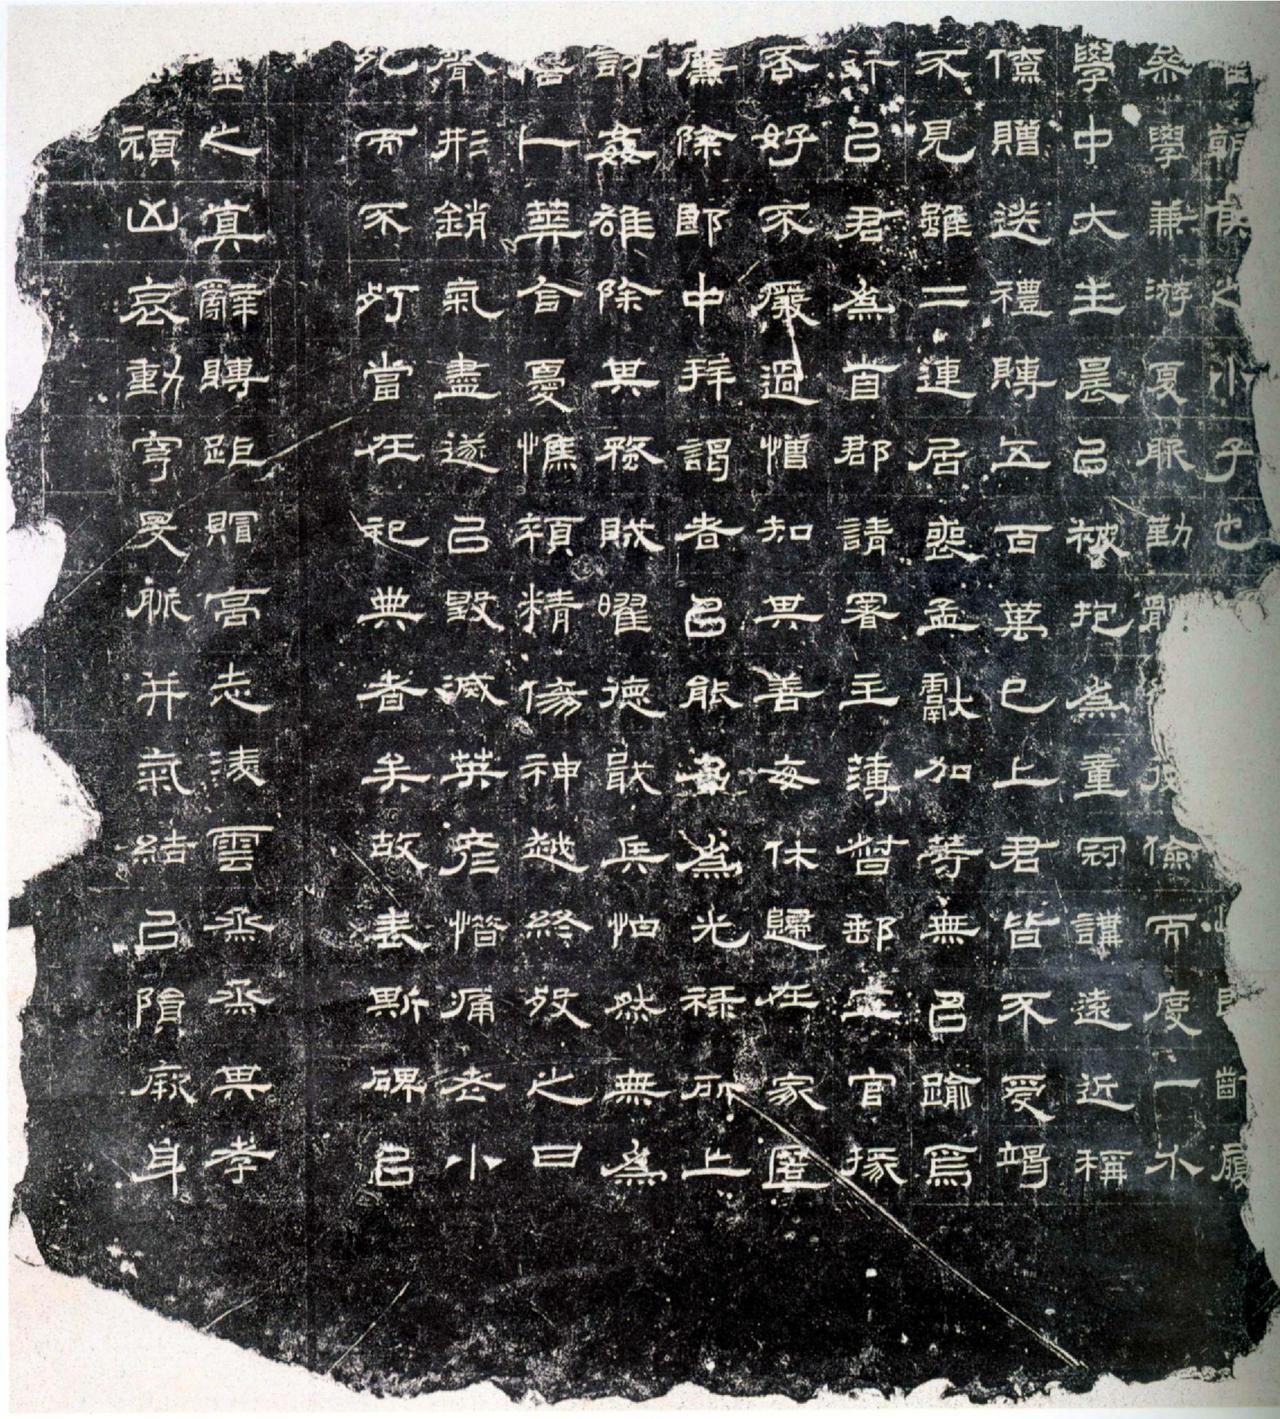 朝侯之小子也齒履
叅學兼游夏服勤後儉而度一介
學中大主晨以被抱為童冠講遠近稱
僚贈送禮賻五百萬已上君皆不受竭
不見雖二連居喪孟獻加等無以踰焉
行已君為首郡請署主薄督郵五官掾
否好不廢過憎知其善每休歸在家匿
廉除郎中拜謁者以能名為光祿所上
討姦雄除其蝥賊曜德戢兵怙然無為
卜葬含憂憔顇精傷神越終歿之日
聲形銷氣盡遂以毀滅英彥惜痛老小
死而不朽當在祀典者矣故表斯碑以
之真辭賻距賵高志淩雲烝烝其孝
凶哀動穹旻脈并氣結以隕厥身